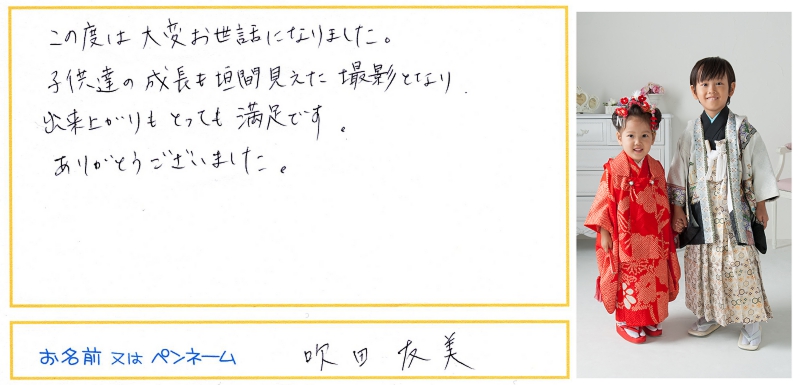 この度は大変お世話になりました。
子供達の成長も垣間見えた撮影となり
出来上がりもとっても満足です。
ありがとうございました。
お名前 又は ペンネーム 吹田友美